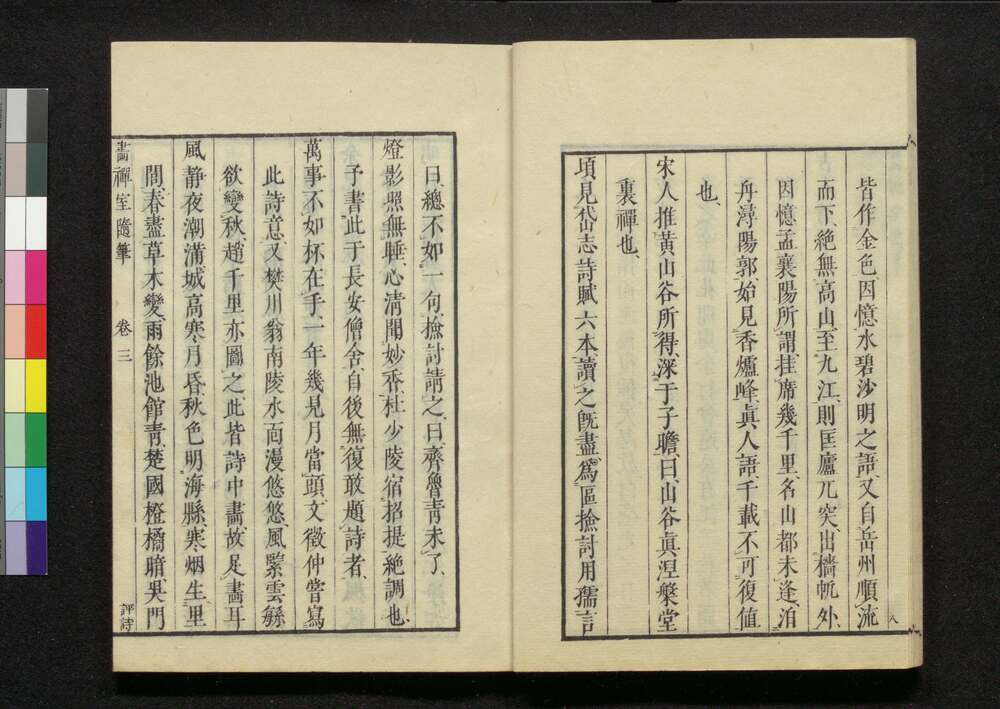 皆作金色因憶水碧沙明之語又自岳州順流
而下絶無高山至九江則匡廬兀突出檣帆外
因憶孟襄陽所謂挂席幾千里名山都未逢泊
舟潯陽郭始見香爐峰眞人語千載不可復值
也
宋人推黄山谷所得深于子瞻曰山谷眞涅槃堂
裏禪也
頃見岱志詩賦六本讀之既盡爲區撿討用孺言
八
曰總不如一句撿討請之曰齊魯青未了
燈影照無睡心清聞妙香杜少陵宿招提絶調也
予書此于長安僧舍自後無復敢題詩者
萬事不如杯在手一年幾見月當頭文徵仲嘗寫
此詩意又樊川翁南陵水面漫悠悠風緊雲繇
欲變秋趙千里亦圖之此皆詩中畵故足畵耳
風静夜潮滿城高寒月昏秋色明海縣寒烟生里
間春盡草木變雨餘池館青楚國橙橘暗吳門
畵禪室隨筆 卷三 評詩